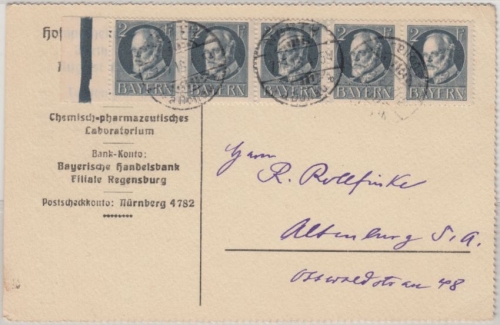 2 F 2 F 2 F 2 F 2 F
BAYERN BAYERN BAYERN BAYERN BAYERN
Hof
Chemisch-pharmazeutisches
Laboratorium
Bank-Konto:
Bayerische Handelsbank
Filiale Regensburg
Postscheckkonto: Nürnberg 4782
Herrn
R. Rollfinke
Altenburg S. A.
Osswaldstrasse 48